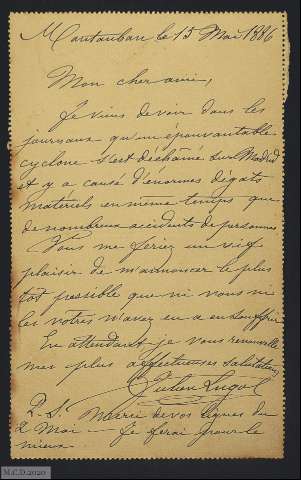 Montauban le 15 Mai 1886
Mon cher ami,
Je viens de voir dans les
journaux qu'un épouvantable
cyclone s'est déchaîné sur Madrid
et y a causé d'énormes dégats
matériels en même temps que
de nombreux accidents de personnes
Vous me feriez un vif
plaisir de m'annoncer le plus
tôt possible que ni vous ni
les vôtres n'avez eu à en souffrir
En attendant je vous renouvelle
mes plus affectueuses salutations
Julien Lugol
P.S. Merci de vos lignes du
2 Mai — Je ferai pour le
mieux
M.C.D 2020